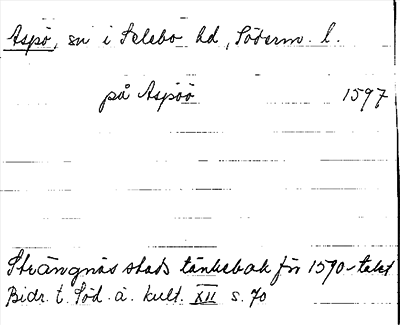 Aspö, sn i Selebo hd, Söderm. l.
på Aspöö 1597
Strängnäs stads tänkebok för 1590-talet
Bidr. t. Söd. ä. kult. XII s. 70